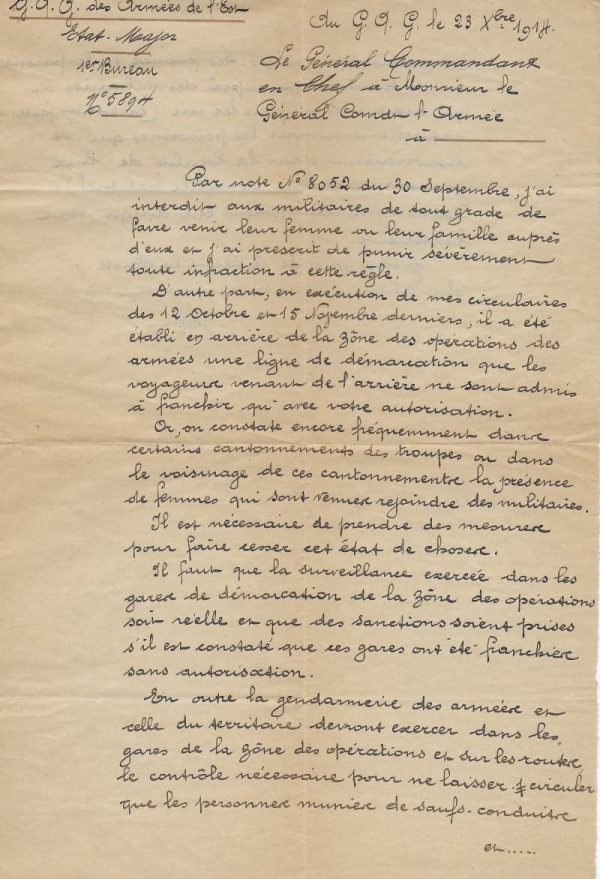 G.Q.G. des Armées de l'Est
Etat-Major
1er Bureau
N° 5894
Au G.Q.G. le 23 Xbre 1914.
Le Général Commandant
en Chef à Monsieur le
Général Comdt l'Armée
à
Par note N° 8052 du 30 Septembre, j'ai
interdit aux militaires de tout grade de
faire venir leur femme ou leur famille auprès
d'eux et j'ai prescrit de punir sévèrement
toute infraction à cette règle.
D'autre part, en exécution de mes circulaires
des 12 Octobre et 15 Novembre derniers, il a été
établi en arrière de la zône des opérations des
armées une ligne de démarcation que les
voyageurs venant de l'arrière ne sont admis
à franchir qu'avec votre autorisation.
Or, on constate encore fréquemment dans
certains cantonnements des troupes ou dans
le voisinage de ces cantonnements la présence
de femmes qui sont venues rejoindre des militaires.
Il est nécessaire de prendre des mesures
pour faire cesser cet état de choses.
Il faut que la surveillance exercée dans les
gares de démarcation de la zône des opérations
soit réelle et que des sanctions soient prises
s'il est constaté que ces gares ont été franchies
sans autorisation.
En outre la gendarmerie des armées et
celle du territoire devront exercer dans les
gares de la zône des opérations et sur les routes
le contrôle nécessaire pour ne laisser circuler
que les personnes munies de saufs-conduits
et.....